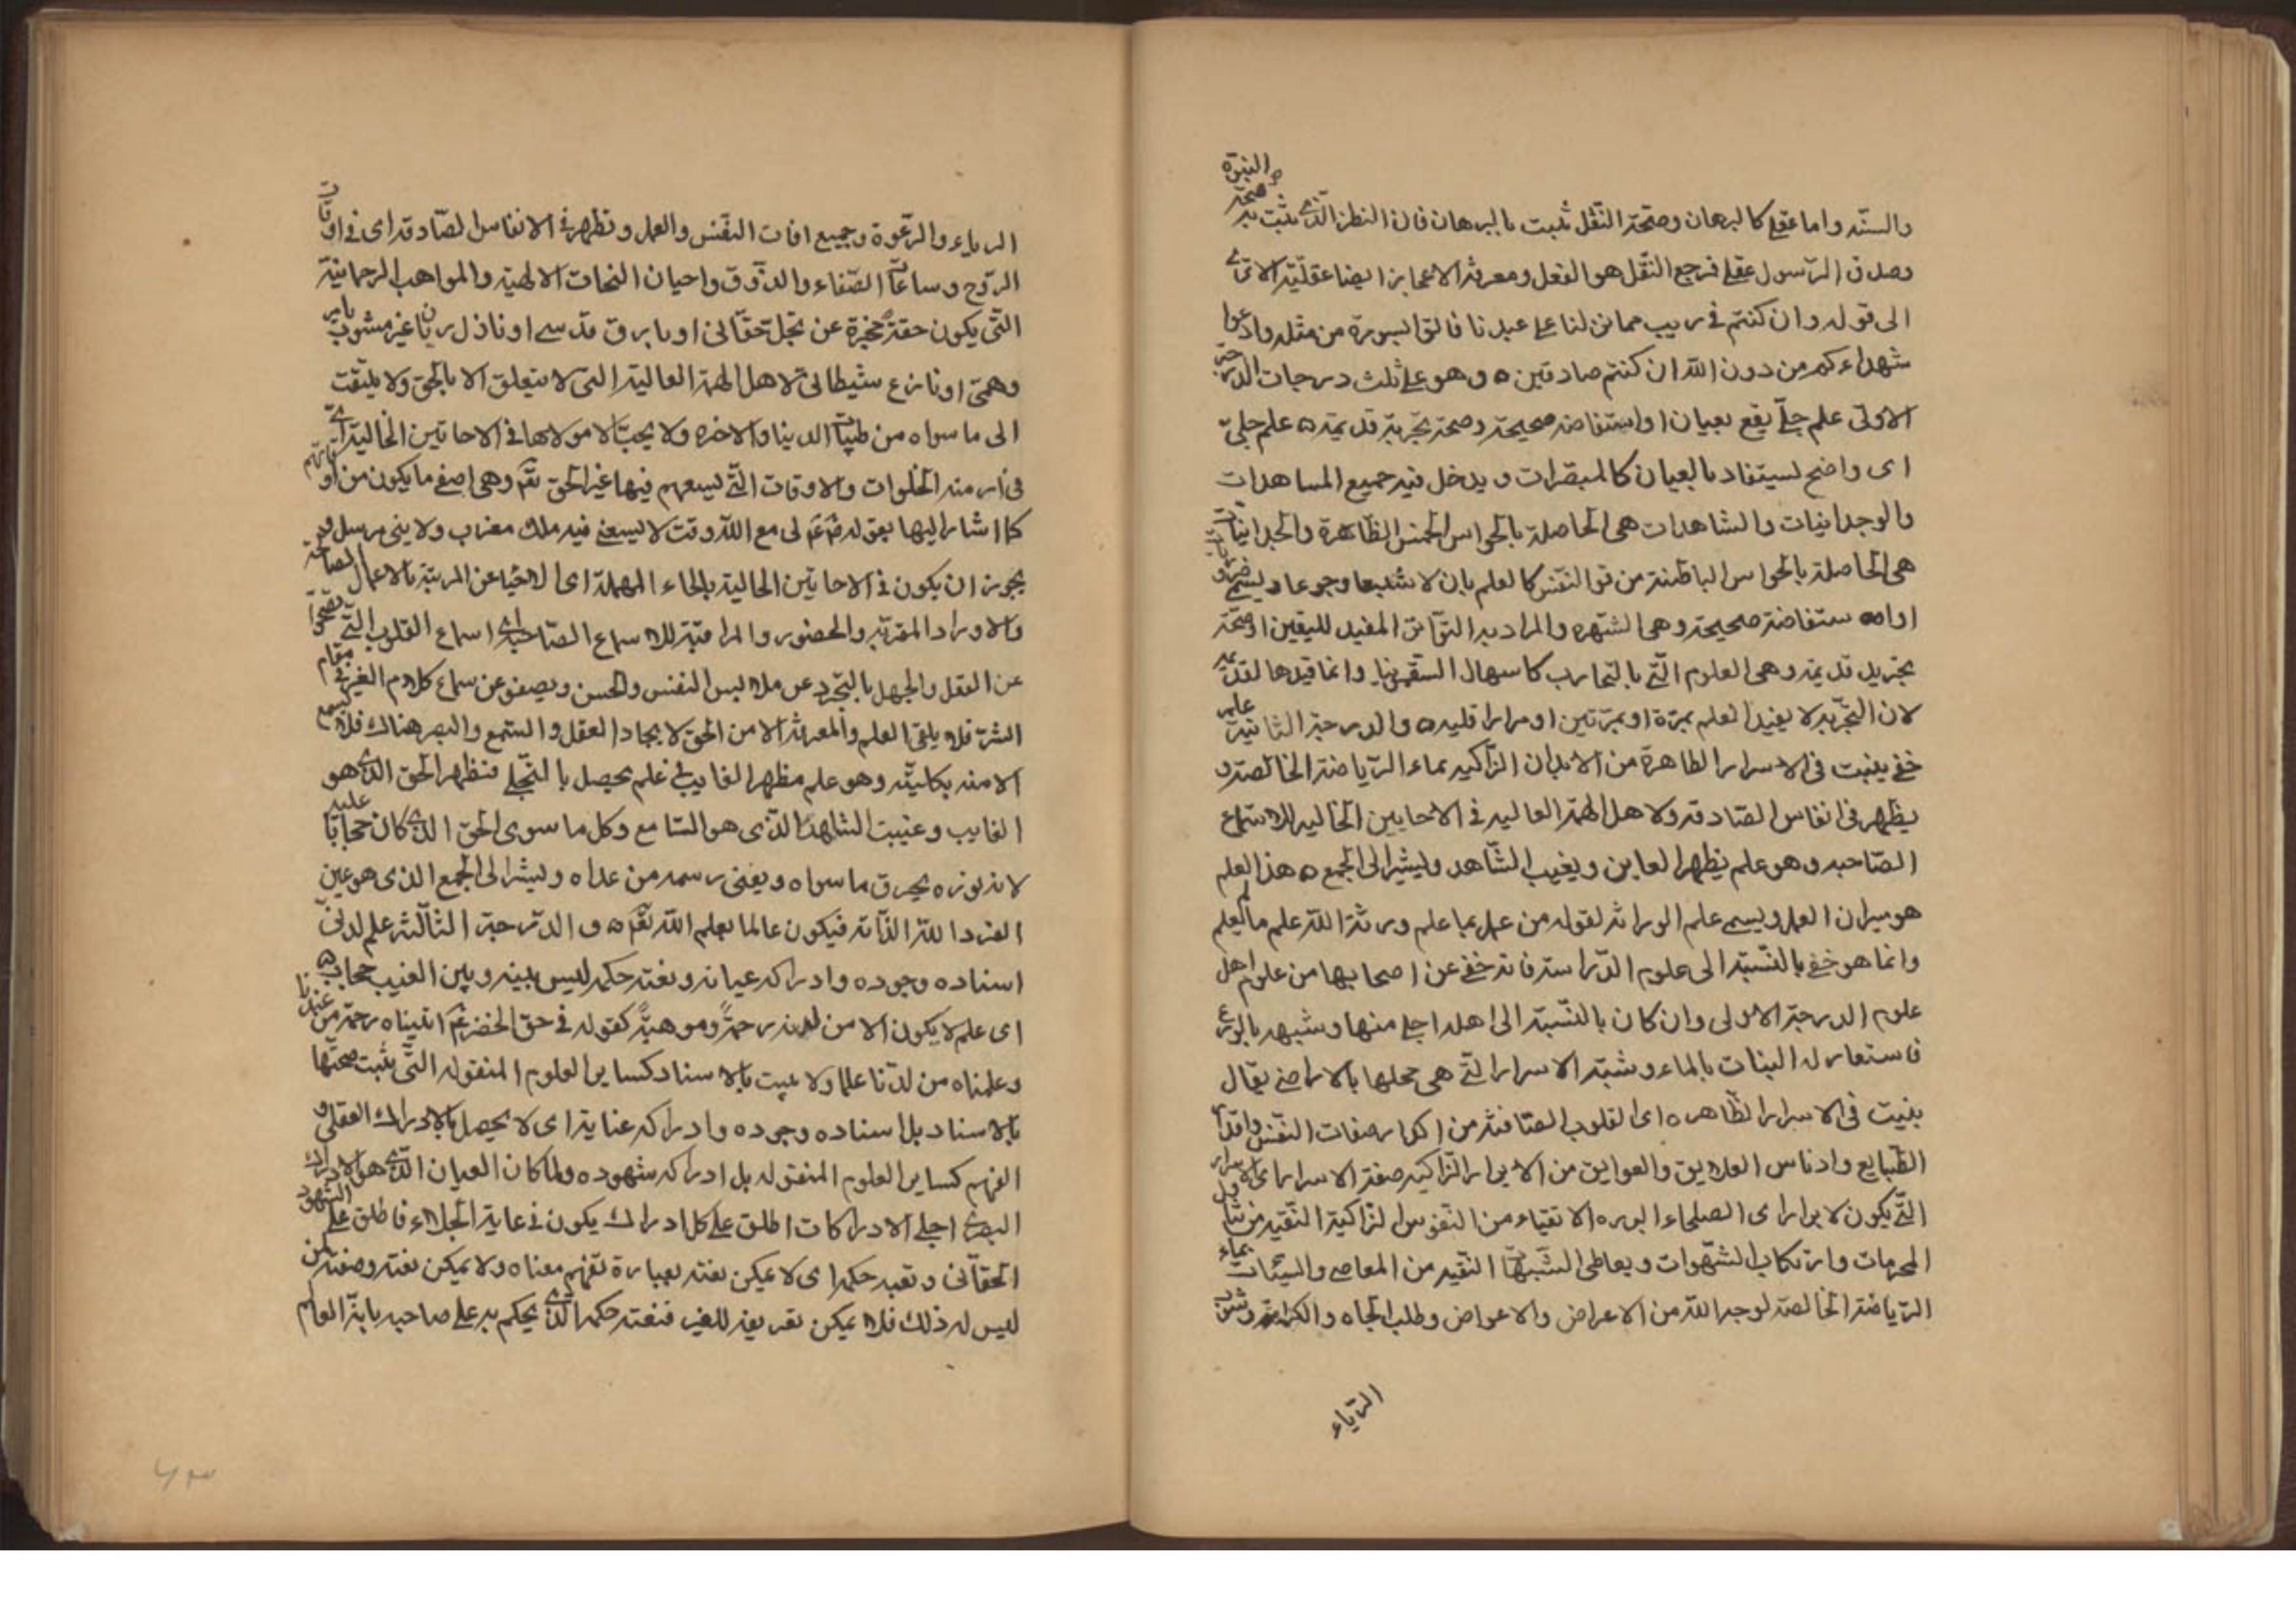 والسنّة واما عقلي كالبرهان وصحّة النّقل تثبت بالبرهان فان النظر الذي يثبت به صحّة النبوّة
وصدق الرّسول عقلي فرجع النّقل هو العقل ومعرفة الاعجاز ايضا عقليّة الا ترى
الى قوله وان كنتم في ريب مما نزلنا على عبدنا فاتوا بسورة من مثله وادعوا
شهداءكم من دون الله ان كنتم صادقين ٥ وهو على ثلث درجات الدرجة
الاولى علم جليّ يقع بعيان او استفاضة صحيحة وصحة تجربة قديمة ٥ علم جليّ
اى واضح يستفاد بالعيان كالمبصرات ويدخل فيه جميع المشاهدات
والوجدانيات والمشاهدات هى الحاصلة بالحواس الخمس الظّاهرة والوجدانيات
هى الحاصلة بالحواس الباطنة من قوى النّفس كالعلم بان لا شبعا وجوعا ويسمى
او استفاضة صحيحة وهى الشهرة والمراد به التّواتر المفيد لليقين او صحّة
تجربة قديمة وهى العلوم الّتى بالتجارب كاسهال السّقمونيا وانما قيدها لقديمة
لان التجّربة لا يفيد العلم بمرّة او بمرّتين او مرارا قليلة ٥ والدرجة الثانية علم
خفي ينبت فى الاسرار الطاهرة من الابدان الزّاكية بماء الرّياضة الخالصة و
يظهر فى انفاس الصّادقة ولاهل الهمّة العالية فى الاحايين الخالية للاستماع
الصّاحبه وهو علم يظهر الغايب ويغيب الشّاهد ويشير الى الجمع ٥ هذا العلم
هو ميراث العمل ويسمى علم الوراثة لقوله من عمل بما علم ورثة الله علم ما لم يعلم
وانما هو خفي بالنّسبة الى علوم الدّراسة فانه خفي عن اصحابها من علوم اهل
علوم الدرجة الاولى وان كان بالنّسبة الى اهله اجلى منها وشبهه بالزرع
فاستعار له النبات بالماء وشبّه الاسرار الّتى هى محلها بالاراضى يقال
ينبت فى الاسرار الطّاهرة اى القلوب الصّافية من اكدار صفات النّفس واقذار
الطّبايع وادناس العلايق والعوايق من الابرار الزّاكية صفة الاسرار اى الاسرار
الّتى يكون لابرار اى الصلحاء البررة الاتقياء من النّفوس الزّاكية النّقية من
المحرمات وارتكاب الشّهوات ويعاطى الشّبهات النّقية من المعاصى والسيّئات بماء
الرّياضة الخالصة لوجه الله من الاعراض والاعواض وطلب الجاه والكرامة وشوب
الرّياء
الرياء والرّعونة وجميع افات النّفس والعمل وتظهر فى الانفاس الصّادقة اى فى اوقات
الرّوح وساعات الصّفاء والذّوق واحيان النفحات الالهية والمواهب الرحمانية
التّى يكون حقة مخبرة عن تجلّ حقّانى او بارق قدسى او نازل ربّانى غير مشوب بامر
وهمىّ او نازع شيطانى لاهل الهمّة العالية التى لا يتعلق الا بالحق ولا يلتفت
الى ما سواه من طيبات الدينا والاخرة ولا يحبّ الا مولاها فى الاحايين الخالية اى
فى ازمنة الخلوات والاوقات التّى ليسعهم فيها غير الحق تقَم وهى اصفى ما يكون من اوقاتهم
كما اشار اليها بقوله عَم لى مع الله وقت لا يسعنى فيه ملك مقرب ولا نبى مرسل و
يجوز ان يكون فى الاحايين الحالية بالحاء المهملة اى الاحيا عن المزيّنة بالاعمال الصالحة
والاوراد المقرّبة والحضور والمراقبة للاسماع الصّاحية اى اسماع القلوب الّتى تصحوا
عن العقل والجهل بالتّجرد عن ملابس النفس والحسن ويصفو عن سماع كلام الغير فى مقام
السّر فلا يلقى العلم والمعرفة الا من الحق لايجاد العقل والسّمع والبصر هناك فلا يسمع
الا منه بكليته وهو علم مظهر الغايب اى علم يحصل بالتّجلى فيظهر الحق الذى هو
الغايب وغيبت الشاهد الّذى هو السّامع وكل ما سوى الحق الذى كان حجابا عليه
لانه بنوره يحرق ما سواه ويفنى رسمه من عداه ويشير الى الجمع الذى هو عين
الفرد الله الذّاته فيكون عالما بعلم الله تقَم ٥ والدّرجة الثّالثة علم لدنىّ
اسناده وجوده وادراكه عيانه ونعته حكمه ليس بينه وبين الغيب حجاب ٥
اى علم لا يكون الا من لدنه رحمةً وموهبةً كقوله فى حق الخضر عَم اتيناه رحمة من عندنا
وعلمناه من لدّنا علما ولا يثبت بالاسناد كساير العلوم المنقوله التّى يثبت صحّتها
بالاسناد بل اسناده وجوده وادراكه عنايته اى لا يحصل بالادراك العقلى و
الفهم كساير العلوم المنقوله بل ادراكه شهوده ولما كان العيان الّذى هو الادراك
البصرى اجلى الادراكات اطلق على كل ادراك يكون فى غاية الجلاء فاطلق على الشهود
الحقّانى ونعته حكمه اى لا يمكن نعته بعبارة تفهم معناه ولا يمكن نعته وصفته لمن
ليس له ذلك فلا يمكن تعريفه للغير فنعته حكمه الّذى يحكم به على صاحبه بانّه العالم
٤٣